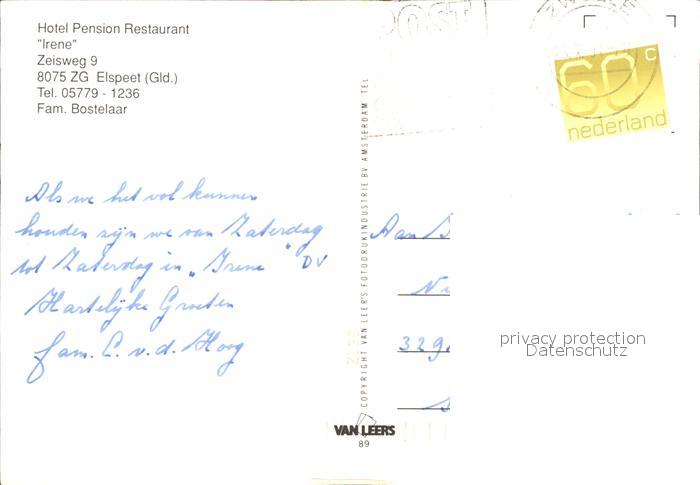 Hotel Pension Restaurant
"Irene"
Zeisweg 9
8075 ZG Elspeet (Gld.)
Tel. 05779 - 1236
Fam. Bostelaar
POST
ZWOLLE
60 c
nederland
Als we het vol kunnen
houden zijn we van Zaterdag
tot Zaterdag in „Irene" DV
Hartelijke Groeten
fam. C. v.d. Hoog
COPYRIGHT VAN LEER'S FOTODRUKINDUSTRIE BV AMSTERDAM TEL
Aan
329
privacy protection
Datenschutz
VAN LEERS
89